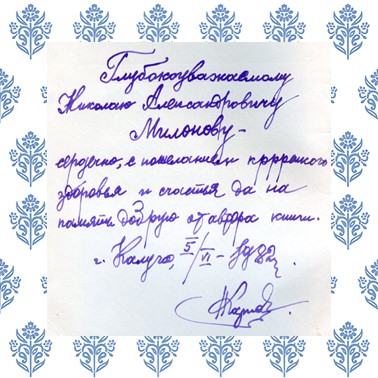 Глубокоуважаемому
Николаю Александровичу
Милонову -
сердечно, с пожеланием прррочного
здоровья и счастья да на
память добрую от автора книги.
г. Калуга, 5/VI - 1982 г.